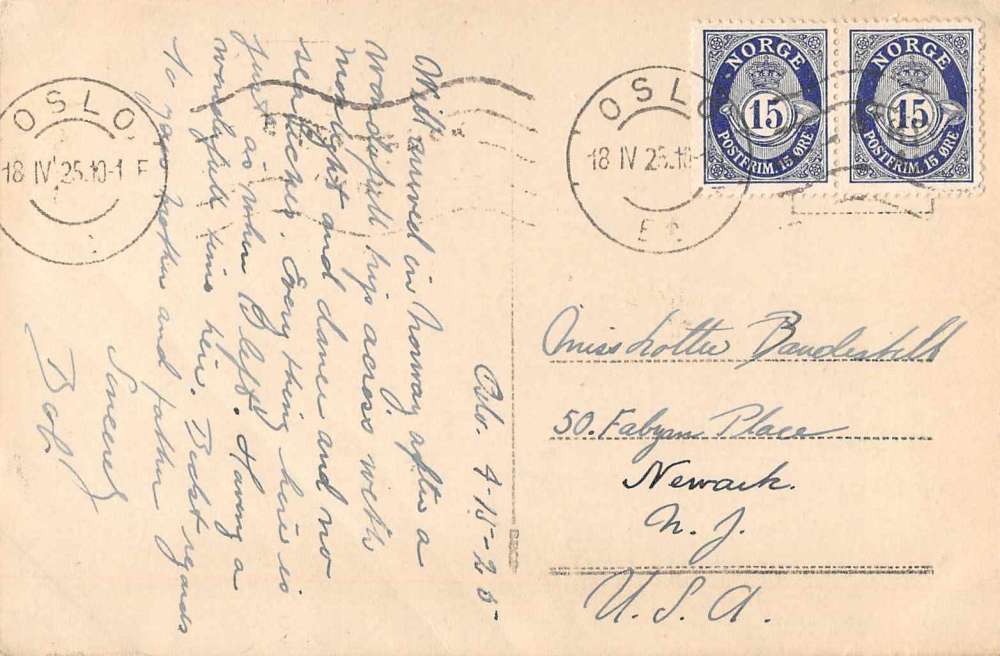 Oslo. 4-15-25
Well arrived in Norway after a
wonderfull trip across with
moonlight and dance and no
seasickness. Every thing here is
just as when I left. Having a
wonderfull time here. Best regards
to your mother and father
Sincerely
Bob
OSLO
18 IV 25.10-1 E
OSLO
18 IV 25.10-1
NORGE
15
POSTFRIM. 15 ØRE
NORGE
15
POSTFRIM. 15 ØRE
Miss Lottie
50. Fabyan Place
Newark.
N. J.
U. S. A.